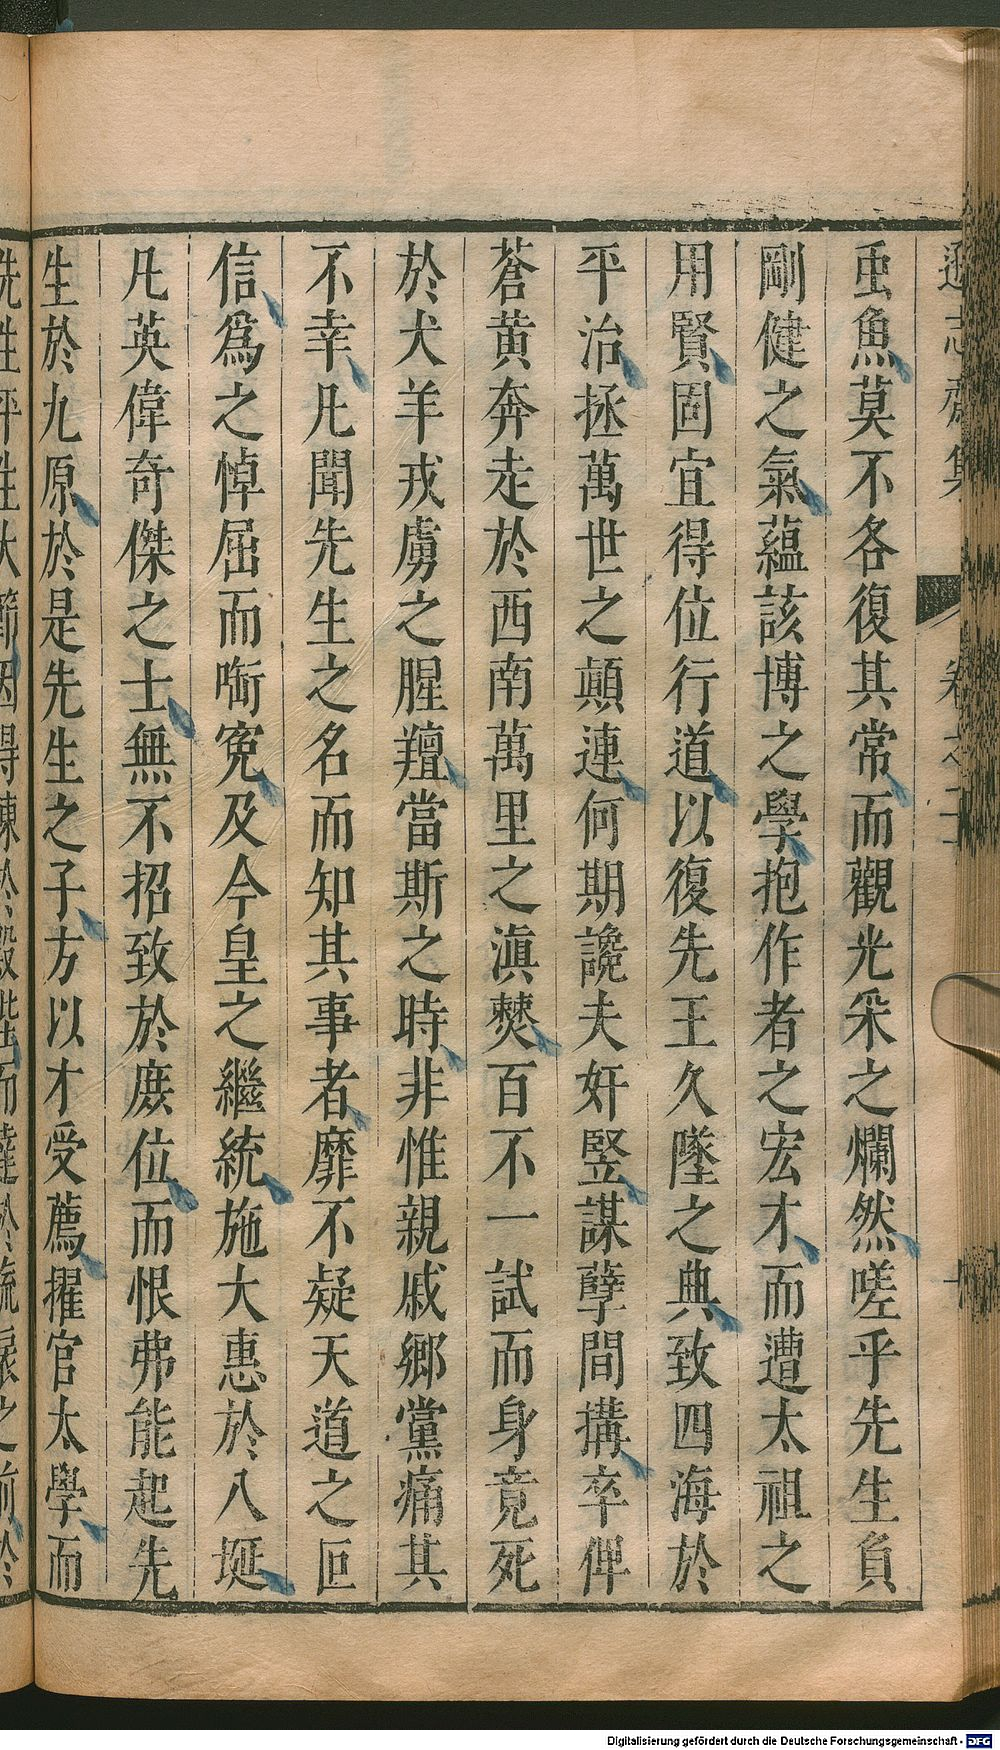 遜志齋集 卷之二十
䖝魚莫不各復其常而觀光采之爛然嗟乎先生負
剛健之氣蘊該博之學抱作者之宏才而遭太祖之
用賢固宜得位行道以復先王久墜之典致四海於
平治拯萬世之顛連何期讒夫奸竪謀孽間搆卒俾
蒼黃奔走於西南萬里之滇僰百不一試而身竟死
於犬羊戎虜之腥羶當斯之時非惟親戚鄉黨痛其
不幸凡聞先生之名而知其事者靡不疑天道之叵
信爲之悼屈而㗸寃及今皇之繼統施大惠於八埏
凡英偉奇傑之士無不招致於庶位而恨弗能起先
生於九原於是先生之子方以才受薦擢官太學而
Digitalisierung gefördert durch die Deutsche Forschungsgemeinschaft - DFG